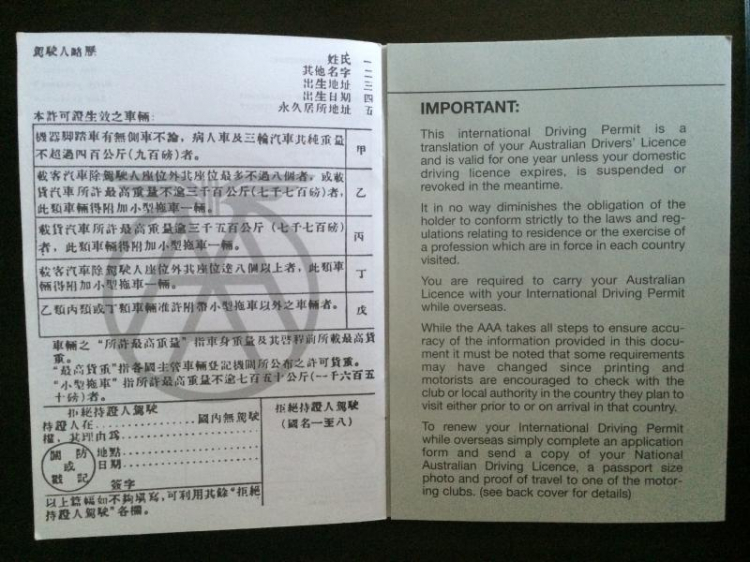 駕駛人略歷
姓氏 一
其他名字 二
出生地址 三
出生日期 四
永久居所地址 五
本許可證生效之車輛:
機器腳踏車有無側車不論，病人車及三輪汽車其純重量
不超過四百公斤(九百磅)者。
甲
載客汽車除駕駛人座位外其座位最多不過八個者，或載
貨汽車所許最高重量不逾三千五百公斤(七千七百磅)者，
此類車輛得附加小型拖車一輛。
乙
載貨汽車所許最高重量逾三千五百公斤(七千七百磅)
者，此類車輛得附加小型拖車一輛。
丙
載客汽車除駕駛人座位外其座位逾八個以上者，此類車
輛得附加小型拖車一輛。
丁
乙類丙類或丁類車輛准許附帶小型拖車以外之車輛者。
戊
車輛之“所許最高重量”指車身重量及其啓程前所載最高貨
重。
“最高貨重”指各國主管車輛登記機關所公布之許可貨重。
“小型拖車”指所許最高重量不逾七百五十公斤(一千六百五
十磅)者。
拒絕持證人駕駛
持證人在..........國內無駕駛
權，其理由爲
關防
或
戳記
地點
日期
簽字
拒絕持證人駕駛
(國名一至八)
以上篇幅如不夠填寫，可利用其餘“拒絕
持證人駕駛”各欄。
IMPORTANT:
This international Driving Permit is a
translation of your Australian Drivers' Licence
and is valid for one year unless your domestic
driving licence expires, is suspended or
revoked in the meantime.
It in no way diminishes the obligation of the
holder to conform strictly to the laws and reg-
ulations relating to residence or the exercise of
a profession which are in force in each country
visited.
You are required to carry your Australian
Licence with your International Driving Permit
while overseas.
While the AAA takes all steps to ensure accu-
racy of the information provided in this docu-
ment it must be noted that some requirements
may have changed since printing and
motorists are encouraged to check with the
club or local authority in the country they plan to
visit either prior to or on arrival in that country.
To renew your International Driving Permit
while overseas simply complete an application
form and send a copy of your National
Australian Driving Licence, a passport size
photo and proof of travel to one of the motor-
ing clubs. (see back cover for details)